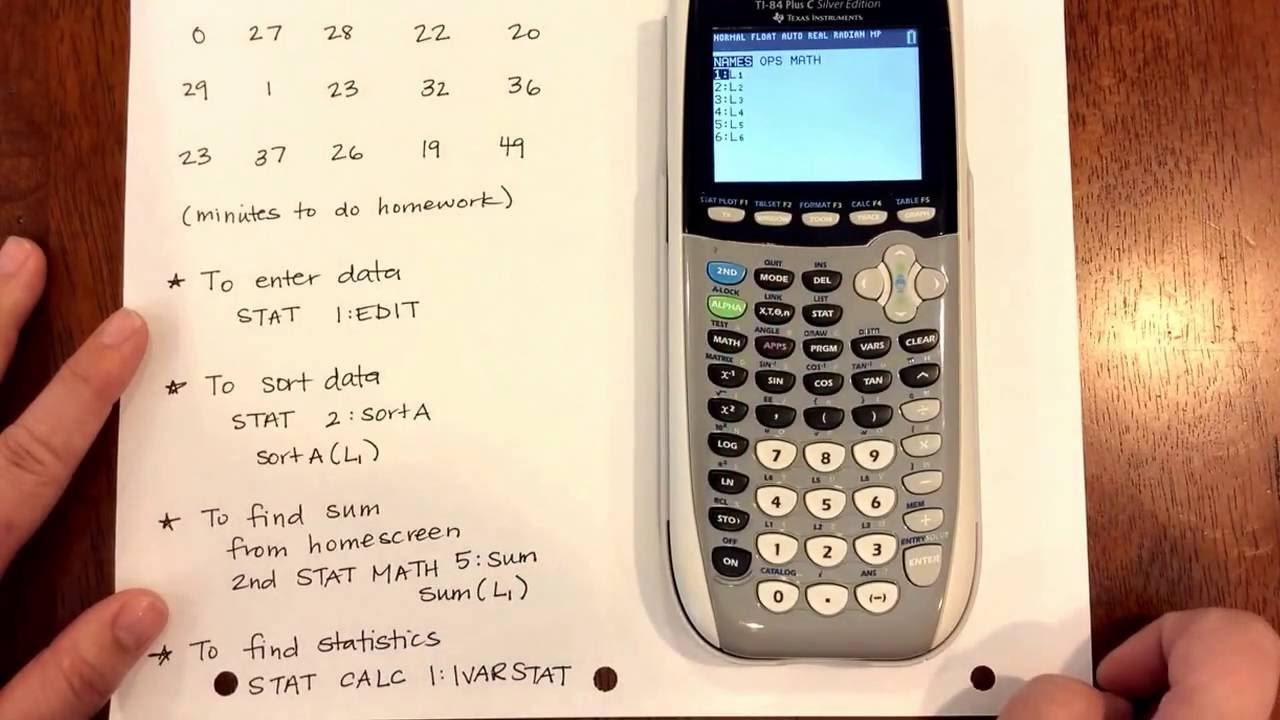 0 27 28 22 20
29 1 23 32 36
23 37 26 19 49
(minutes to do homework)
★ To enter data
STAT 1:EDIT
★ To sort data
STAT 2:sortA
sortA(L₁)
★ To find sum
from homescreen
2nd STAT MATH 5:sum
sum(L₁)
★ To find statistics
STAT CALC 1:1VARSTAT
TI-84 Plus C Silver Edition
TEXAS INSTRUMENTS
NORMAL FLOAT AUTO REAL RADIAN MP
NAMES OPS MATH
1:L₁
2:L₂
3:L₃
4:L₄
5:L₅
6:L₆
STAT PLOT F1 TBLSET F2 FORMAT F3 CALC F4 TABLE F5
Y= WINDOW ZOOM TRACE GRAPH
QUIT INS
2ND MODE DEL
A-LOCK LINK LIST
ALPHA X,T,Θ,n STAT
TEST ANGLE DRAW DISTR
MATH APPS PRGM VARS CLEAR
MATRIX SIN⁻¹ COS⁻¹ TAN⁻¹
x⁻¹ SIN COS TAN ^
EE
x² , ( ) ÷
LOG 7 8 9 ×
L4 L5 L6
LN 4 5 6 −
RCL L1 L2 L3 MEM
STO› 1 2 3 +
OFF CATALOG i ANS ENTRY SOLVE
ON 0 . (−) ENTER